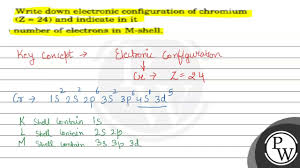 Write down electronic configuration of chromium
(Z = 24) and indicate in it
number of electrons in M-shell.
Key Concept → Electronic Configuration
Cr → Z = 24
Cr → 1S² 2S² 2P⁶ 3S² 3P⁶ 4S¹ 3d⁵
K Shell Contain 1S
L Shell Contain 2S 2P
M Shell Contain 3S 3P 3d
PW